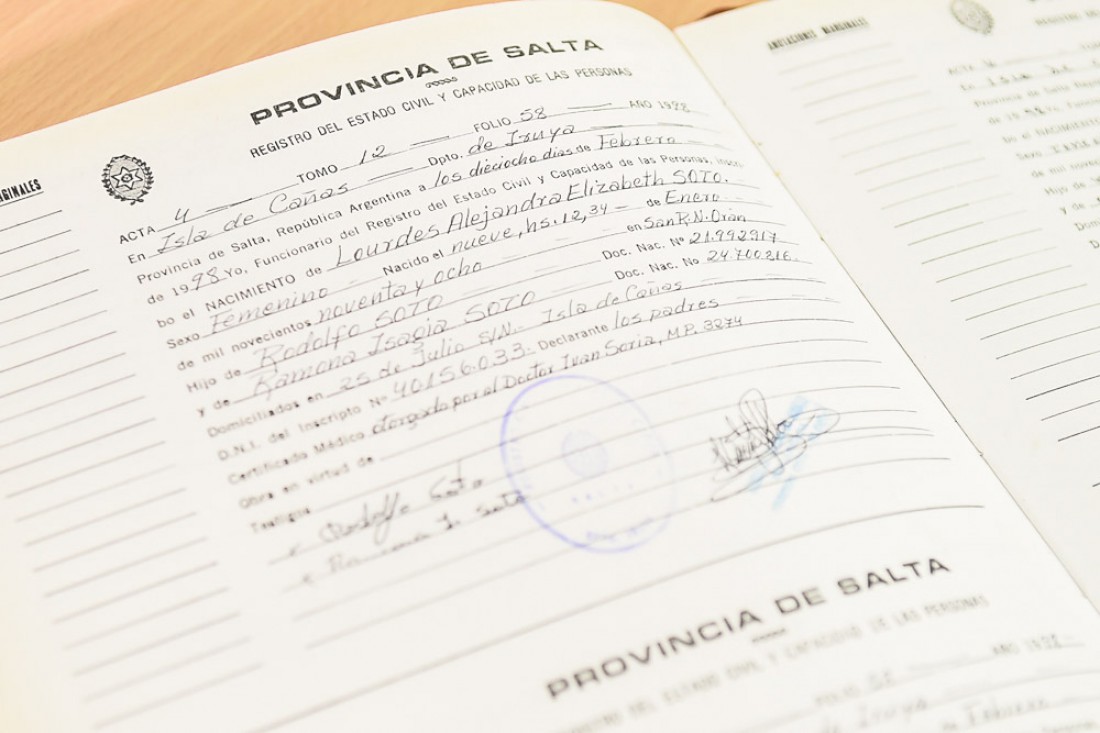 PROVINCIA DE SALTA
REGISTRO DEL ESTADO CIVIL Y CAPACIDAD DE LAS PERSONAS
ACTA 4 TOMO 12 FOLIO 58 AÑO 1998
En Isla de Cañas Dpto. de Iruya
Provincia de Salta, República Argentina a los dieciocho dias de Febrero
de 1998 Yo, Funcionario del Registro del Estado Civil y Capacidad de las Personas, inscri-
bo el NACIMIENTO de Lourdes Alejandra Elizabeth SOTO.
Sexo Femenino Nacido el nueve, hs. 12,34 de Enero
de mil novecientos noventa y ocho en San R. N. Orán
Hijo de Rodolfo SOTO Doc. Nac. Nº 21.992917
y de Ramona SOTO Doc. Nac. No 24.700.216
Domiciliados en 25 de Julio S/N.- Isla de Cañas
D.N.I. del Inscripto Nº 40156.033.- Declarante los padres
Certificado Médico otorgado por el Doctor Ivan Soria, M.P. 3274
Obra en virtud de
Testigos
Rodolfo Soto
Soto
GINALES
PROVINCIA DE SALTA
REGISTRO DEL ESTADO CIVIL Y CAPACIDAD DE LAS PERSONAS
de Iruya
de Febrero
ANOTACIONES MARGINALES
ACTA
Provincia de Salta
bo el NACIMIENTO
Sexo
Hijo de
y de